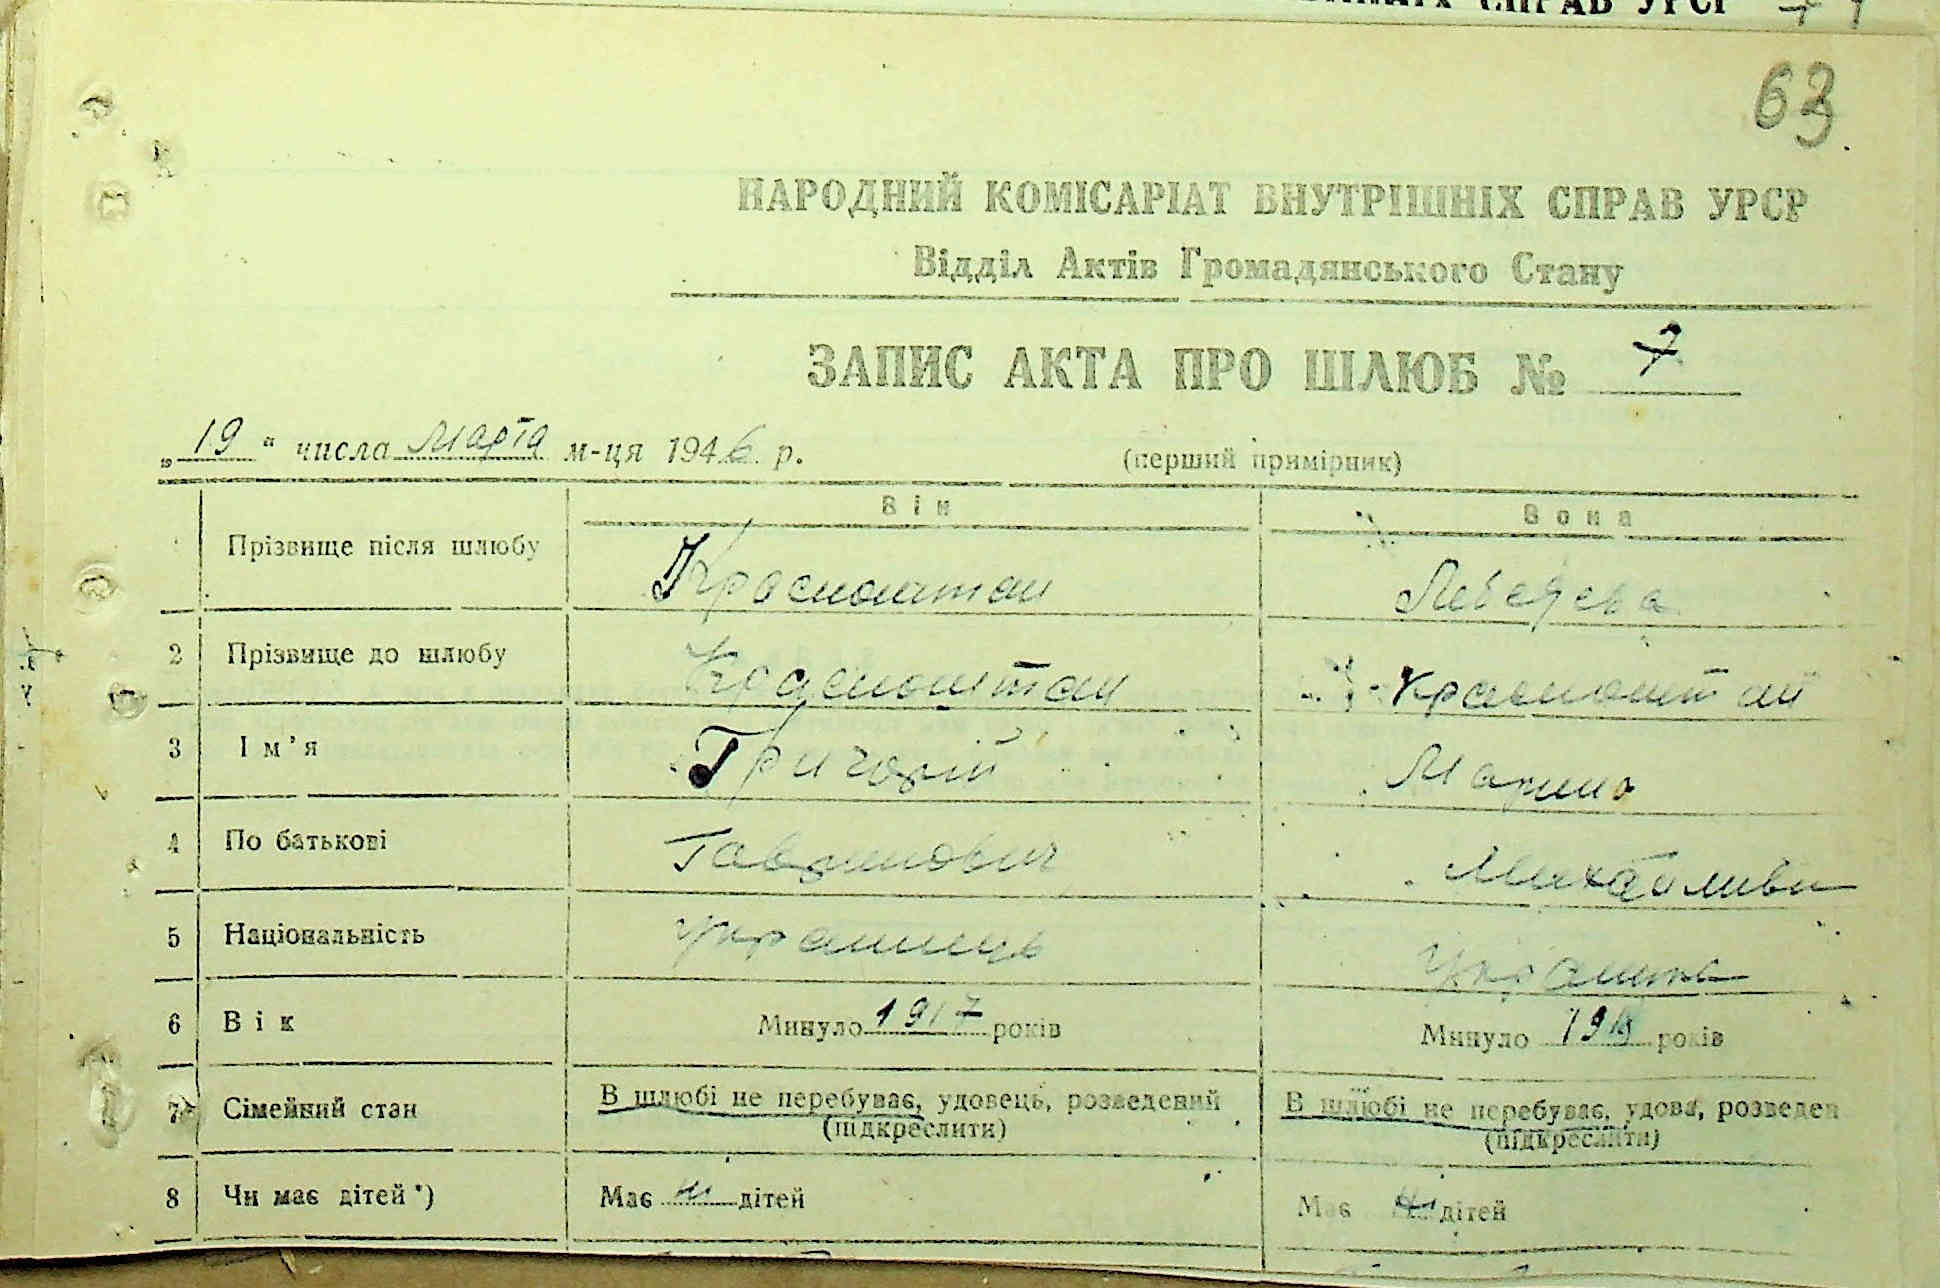 СПРАВ УРСР
63
НАРОДНИЙ КОМІСАРІАТ ВНУТРІШНІХ СПРАВ УРСР
Відділ Актів Громадянського Стану
ЗАПИС АКТА ПРО ШЛЮБ № 7
„19“ числа Марта м-ця 1946 р. (перший примірник)
Він Вона
Прізвище після шлюбу Красноштан Лебедева
2 Прізвище до шлюбу Красноштан Красноштан
3 Ім’я Григорій Марина
4 По батькові Гаврилович Михайливн
5 Національність Українець Українка
6 Вік Минуло 1917 років Минуло років
7 Сімейний стан В шлюбі не перебуває, удовець, розведений В шлюбі не перебуває, удова, розведен
(підкреслити) (підкреслити)
8 Чи має дітей*) Має ні дітей Має ні дітей